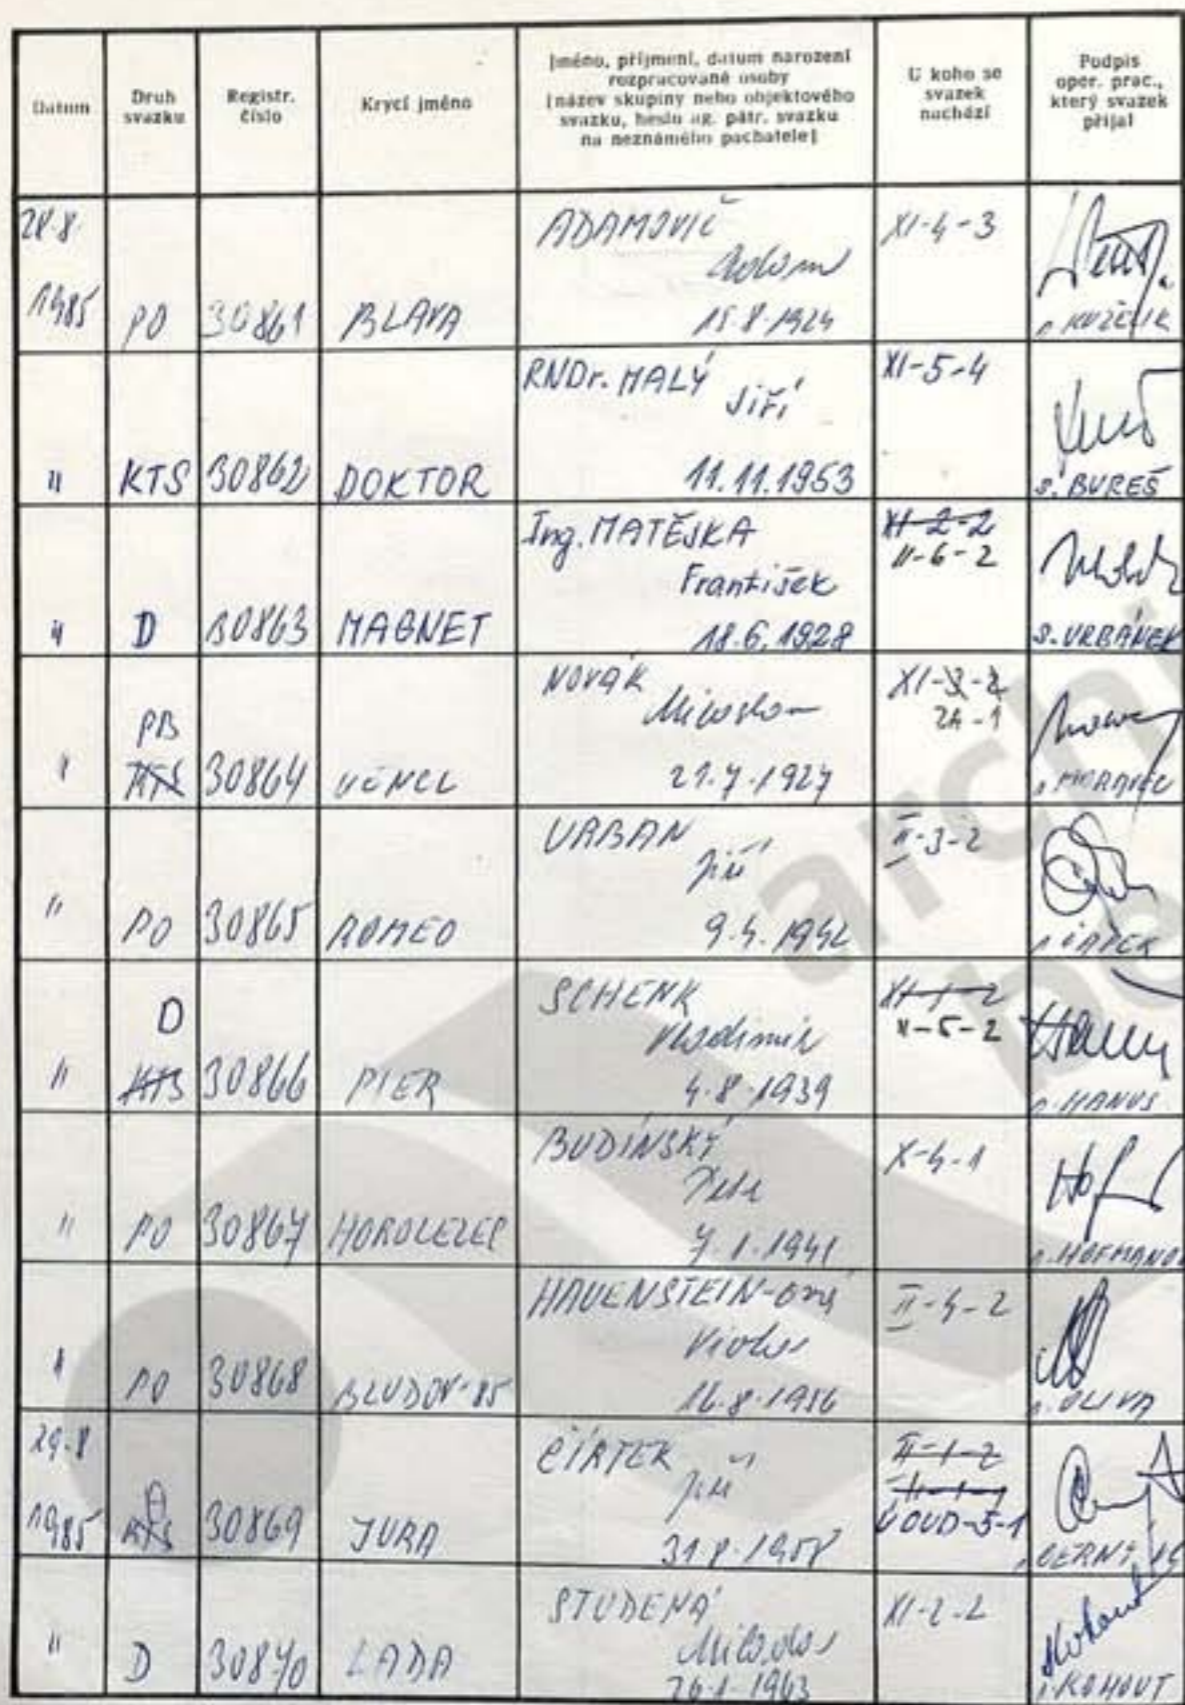 Datum
Druh svazku
Registr. číslo
Krycí jméno
Jméno, příjmení, datum narození
rozpracované osoby
(název skupiny nebo objektového
svazku, heslo ag. pátr. svazku
na neznámého pachatele)
U koho se
svazek
nachází
Podpis
oper. prac.,
který svazek
přijal
28.8. 1985 PO 30861 BLAVA
ADAMOVIČ
15.8.1924
XI-4-3
" KTS 30862 DOKTOR
RNDr. MALÝ
Jiří
11.11.1953
XI-5-4
s. BUREŠ
" D 30863 MAGNET
Ing. MATĚJKA
František
18.6.1928
XI-2-2
II-6-2
s. URBÁNEK
" PB KTS 30864
NOVÁK
Miroslav
27.7.1927
XI-3-2
" PO 30865 ROMEO
URBAN
Jiří
9.4.1942
II-3-2
" D KTS 30866 PIER
SCHENK
Vladimír
4.8.1939
XI-1-2
II-5-2
s. HANUS
" PO 30867 HOROLEZEC
BUDÍNSKÝ
Petr
7.1.1941
X-4-1
" PO 30868 BLUDOV-85
HAUENSTEIN-ová
16.8.1956
II-4-2
s. OLIVA
29.8 1985 KTS 30869 JURA
ČÍRTEK
Jiří
31.8.1958
II-1-2
ÚOUD-5-1
" D 30870 LADA
STUDENÁ
26.1.1963
XI-2-2
s. KOHOUT